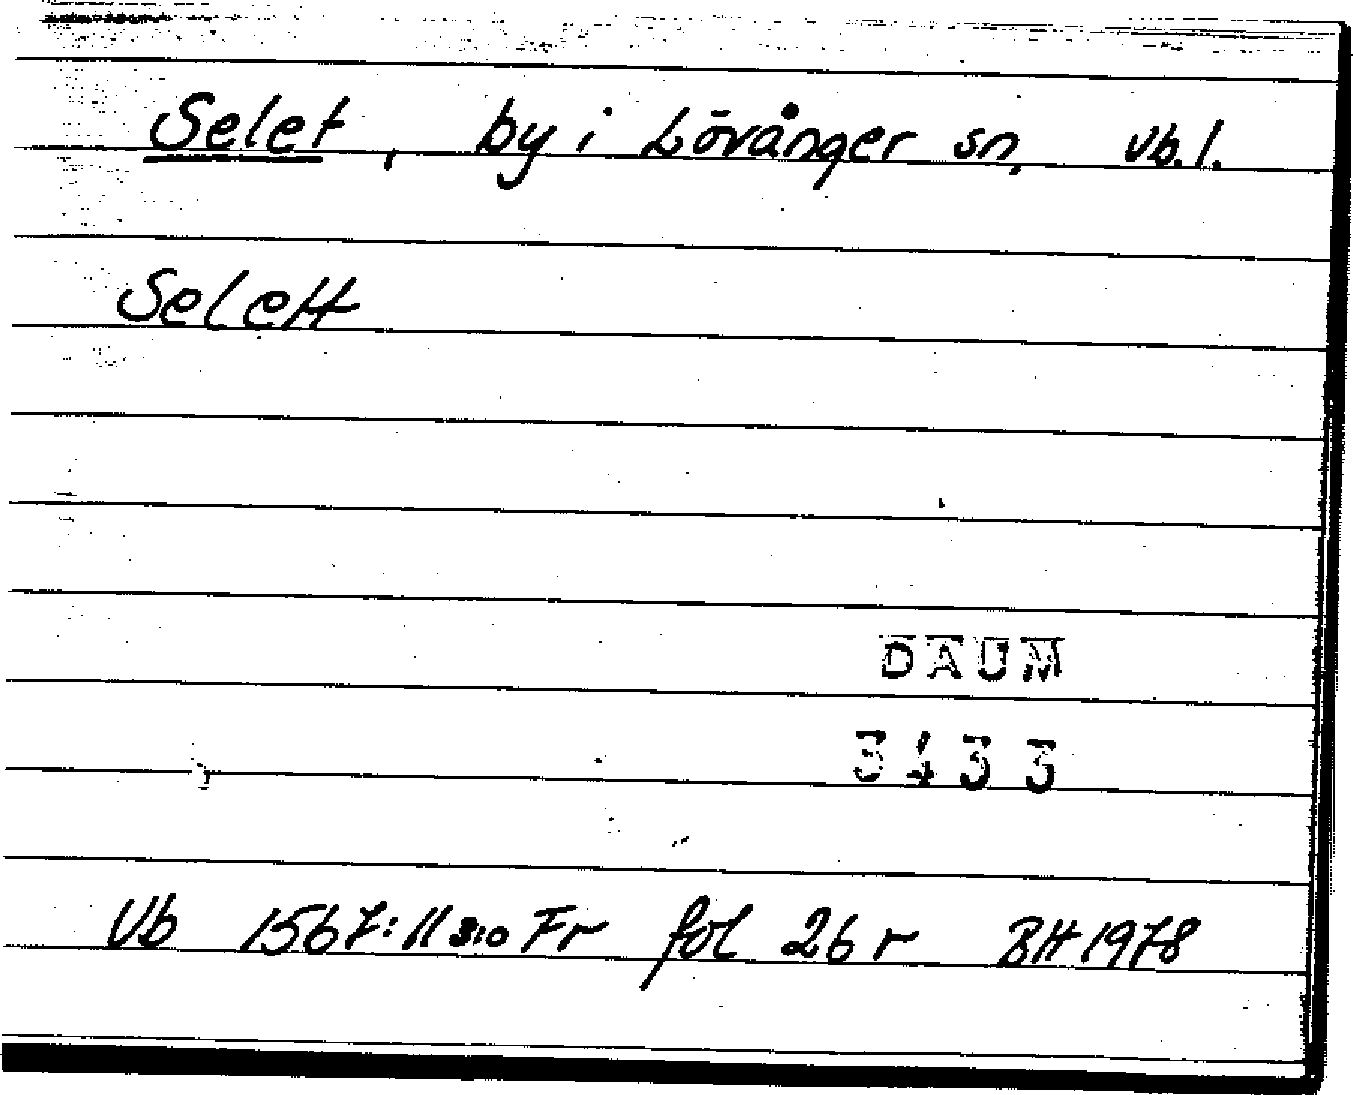 Selet, by i Lövånger sn, Vb. l.
Selett
DAUM
3433
Vb 1567:11 Fr fol 26 r BH 1978